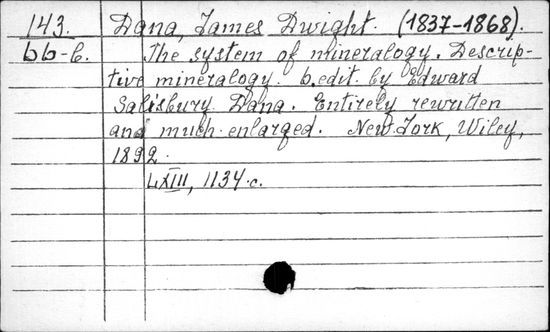 143. Dana, James Dwight. (1837-1868).
bb-b. The system of mineralogy. Descrip-
tive mineralogy. 6. edit. by Edward
Salisbury Dana. Entirely rewritten
and much enlarged. New-York, Wiley,
1892.
LXIII, 1134 c.